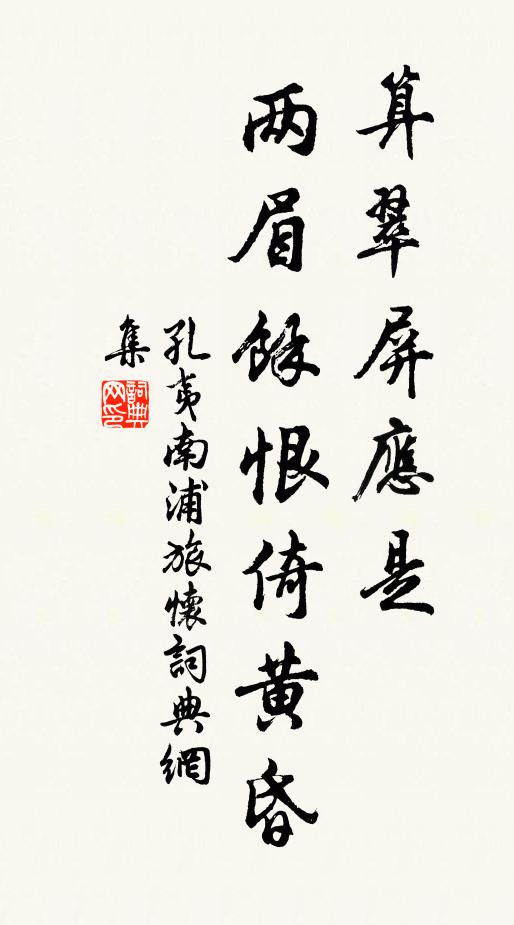 算翠屏應是
两眉餘恨倚黄昏
孔夷南浦旅懷詞典網
集
詞典网印